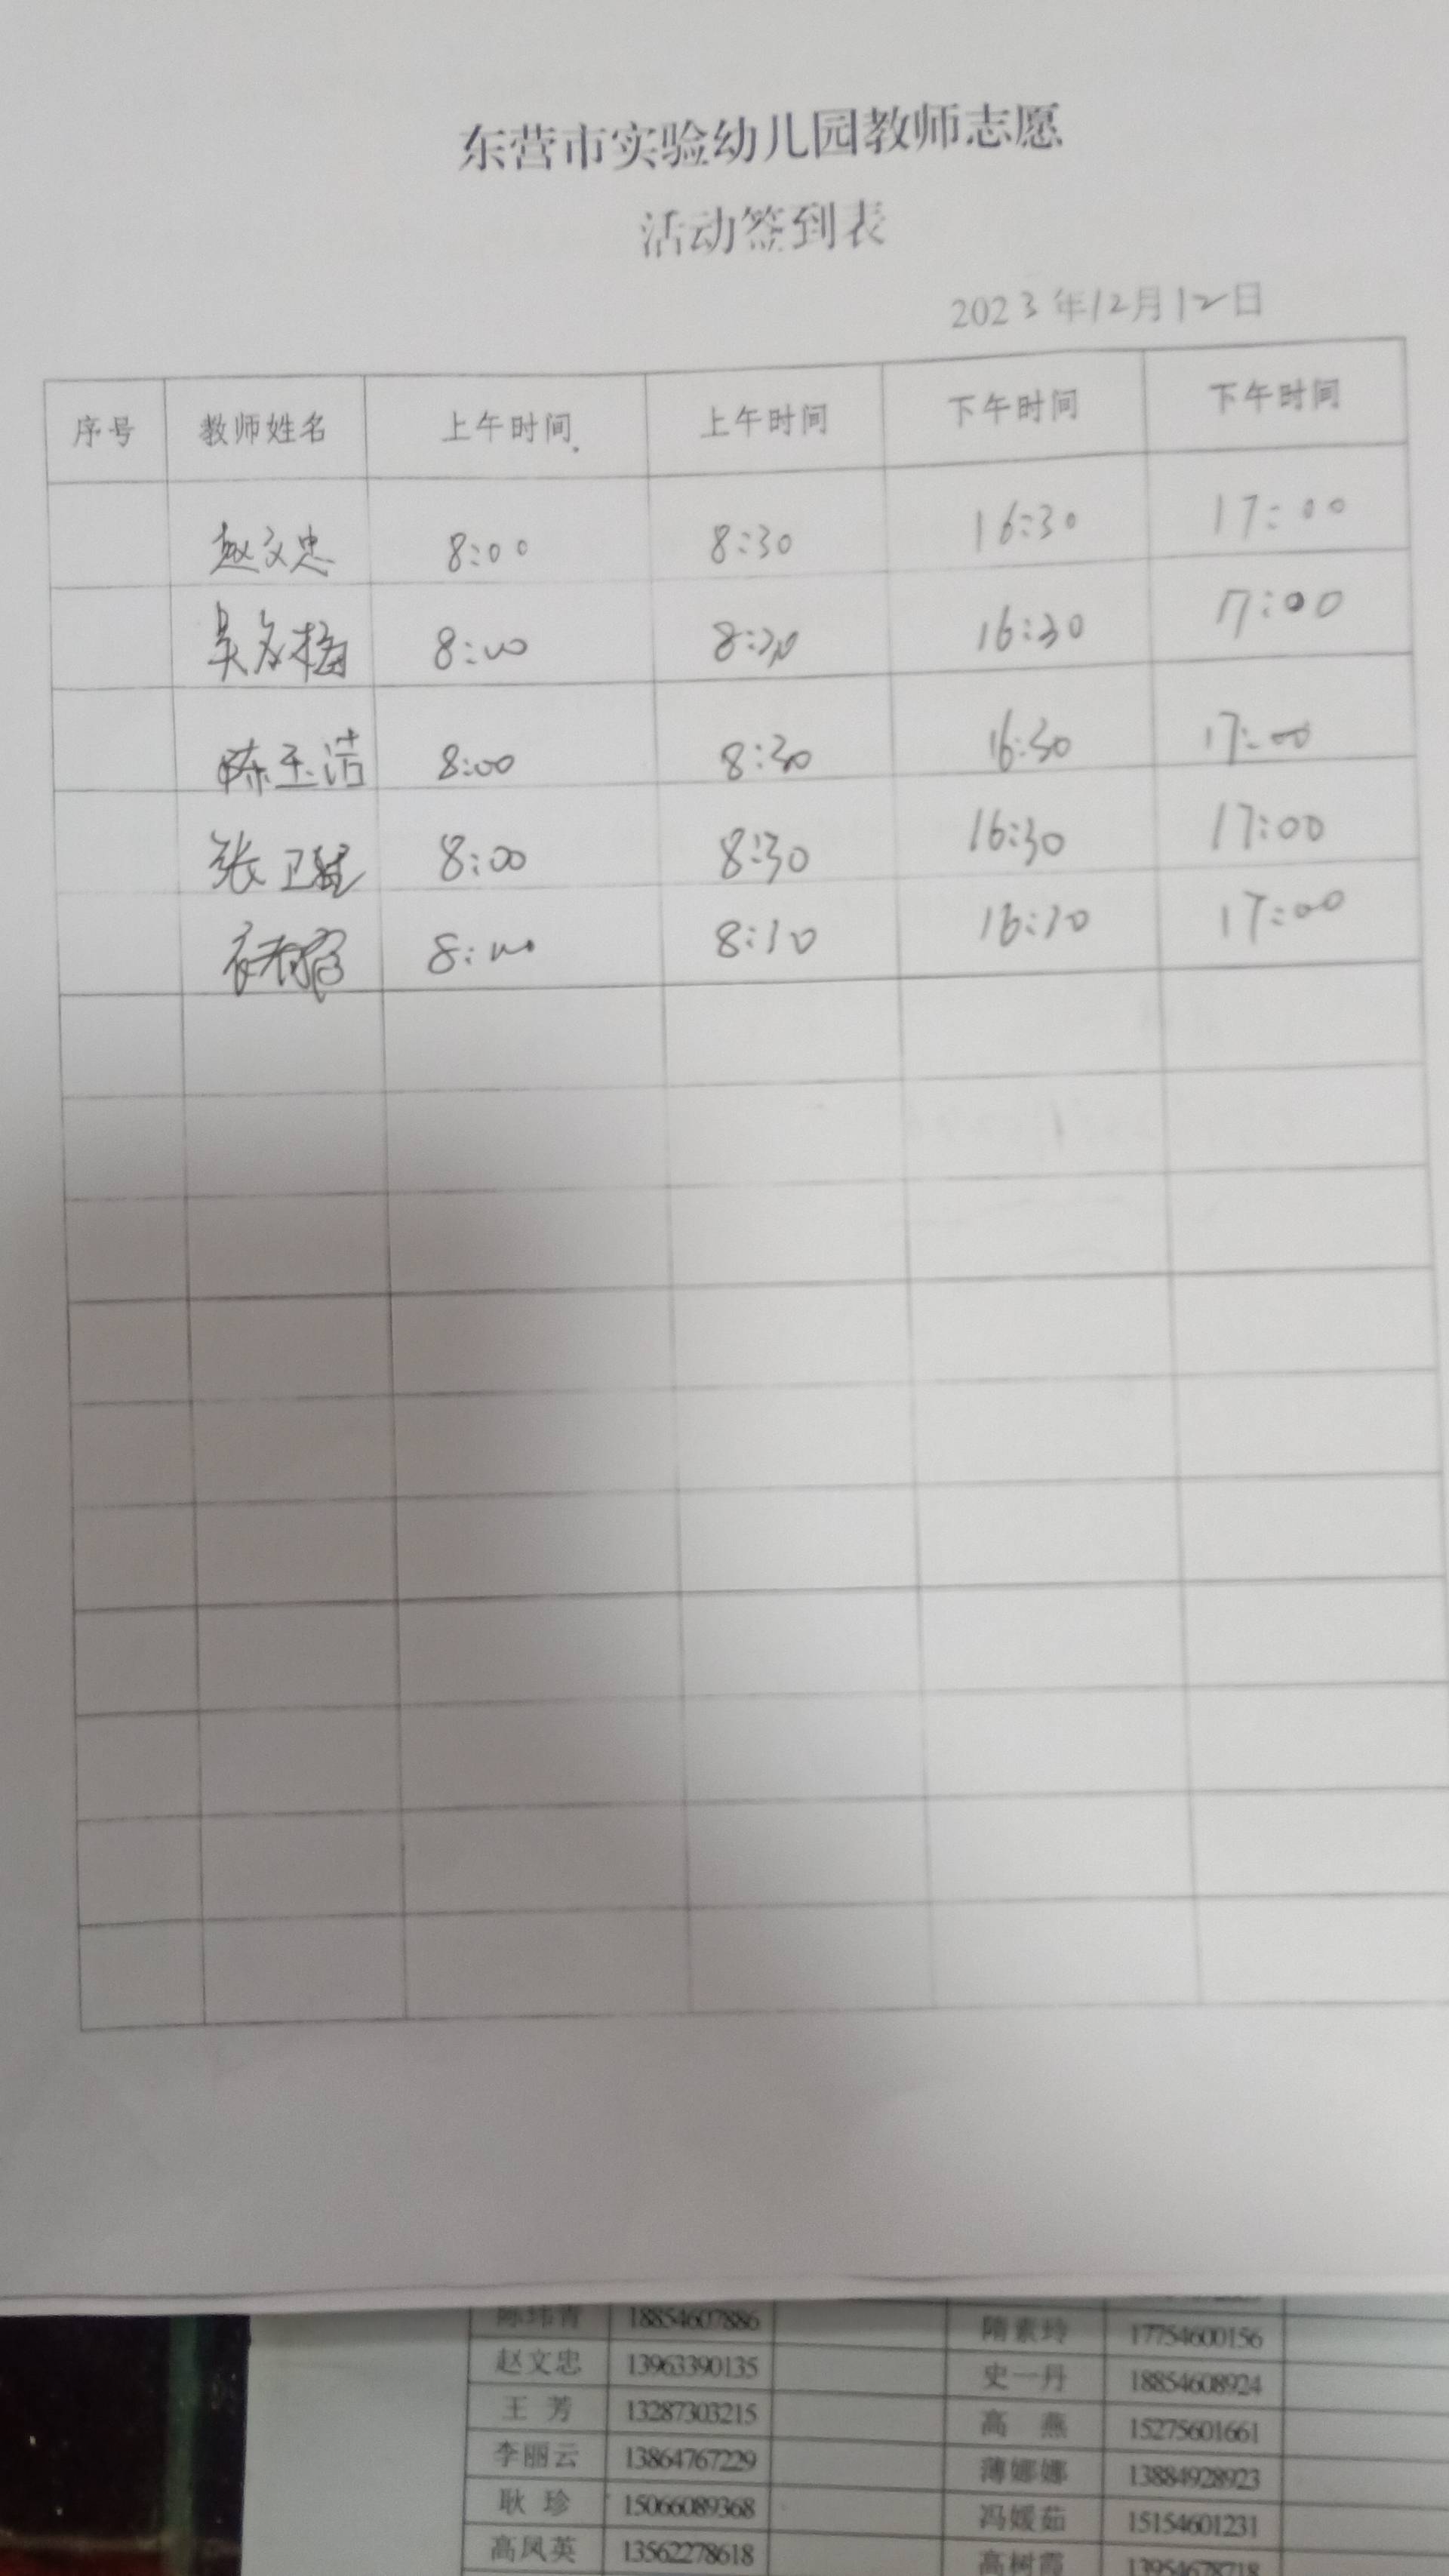 东营市实验幼儿园教师志愿
活动签到表
2023年12月12日
序号 教师姓名 上午时间 上午时间 下午时间 下午时间
赵文忠 8:00 8:30 16:30 17:00
吴冬梅 8:00 8:30 16:30 17:00
陈玉洁 8:00 8:30 16:30 17:00
张卫 8:00 8:30 16:30 17:00
8:00 8:10 16:10 17:00
陈玮青 18854607886 隋素玲 17754600156
赵文忠 13963390135 史一丹 18854608924
王 芳 13287303215 高 燕 15275601661
李丽云 13864767229 薄娜娜 13884928923
耿 珍 15066089368 冯媛茹 15154601231
高凤英 13562278618 高树霞 13954678718